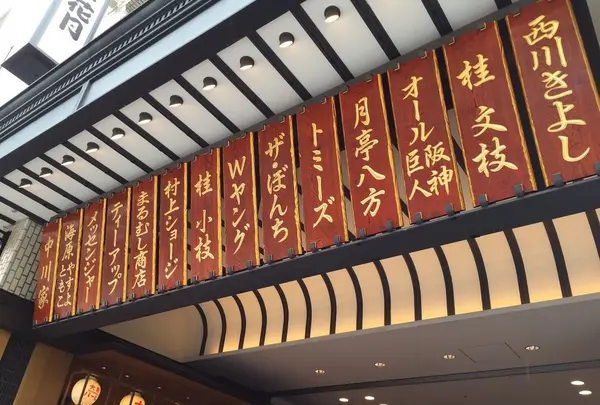 西川きよし
桂 文枝
オール阪神
巨人
月亭八方
トミーズ
ザ・ぼんち
Wヤング
桂 小枝
村上ショージ
まるむし商店
ティーアップ
メッセンジャー
海原 やすよ
ともこ
中川家